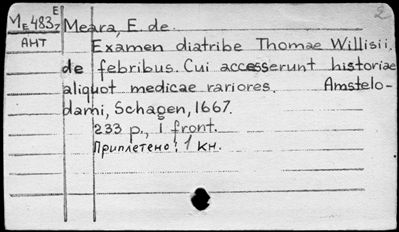 E
Mᴇ483₇ Meara, E. de.
АНТ Examen diatribe Thomae Willisii,
de febribus. Cui accesserunt historiae
aliquot medicae rariores. Amstelo-
dami, Schagen, 1667.
233 p., 1 front.
Приплетено: 1 кн.
2